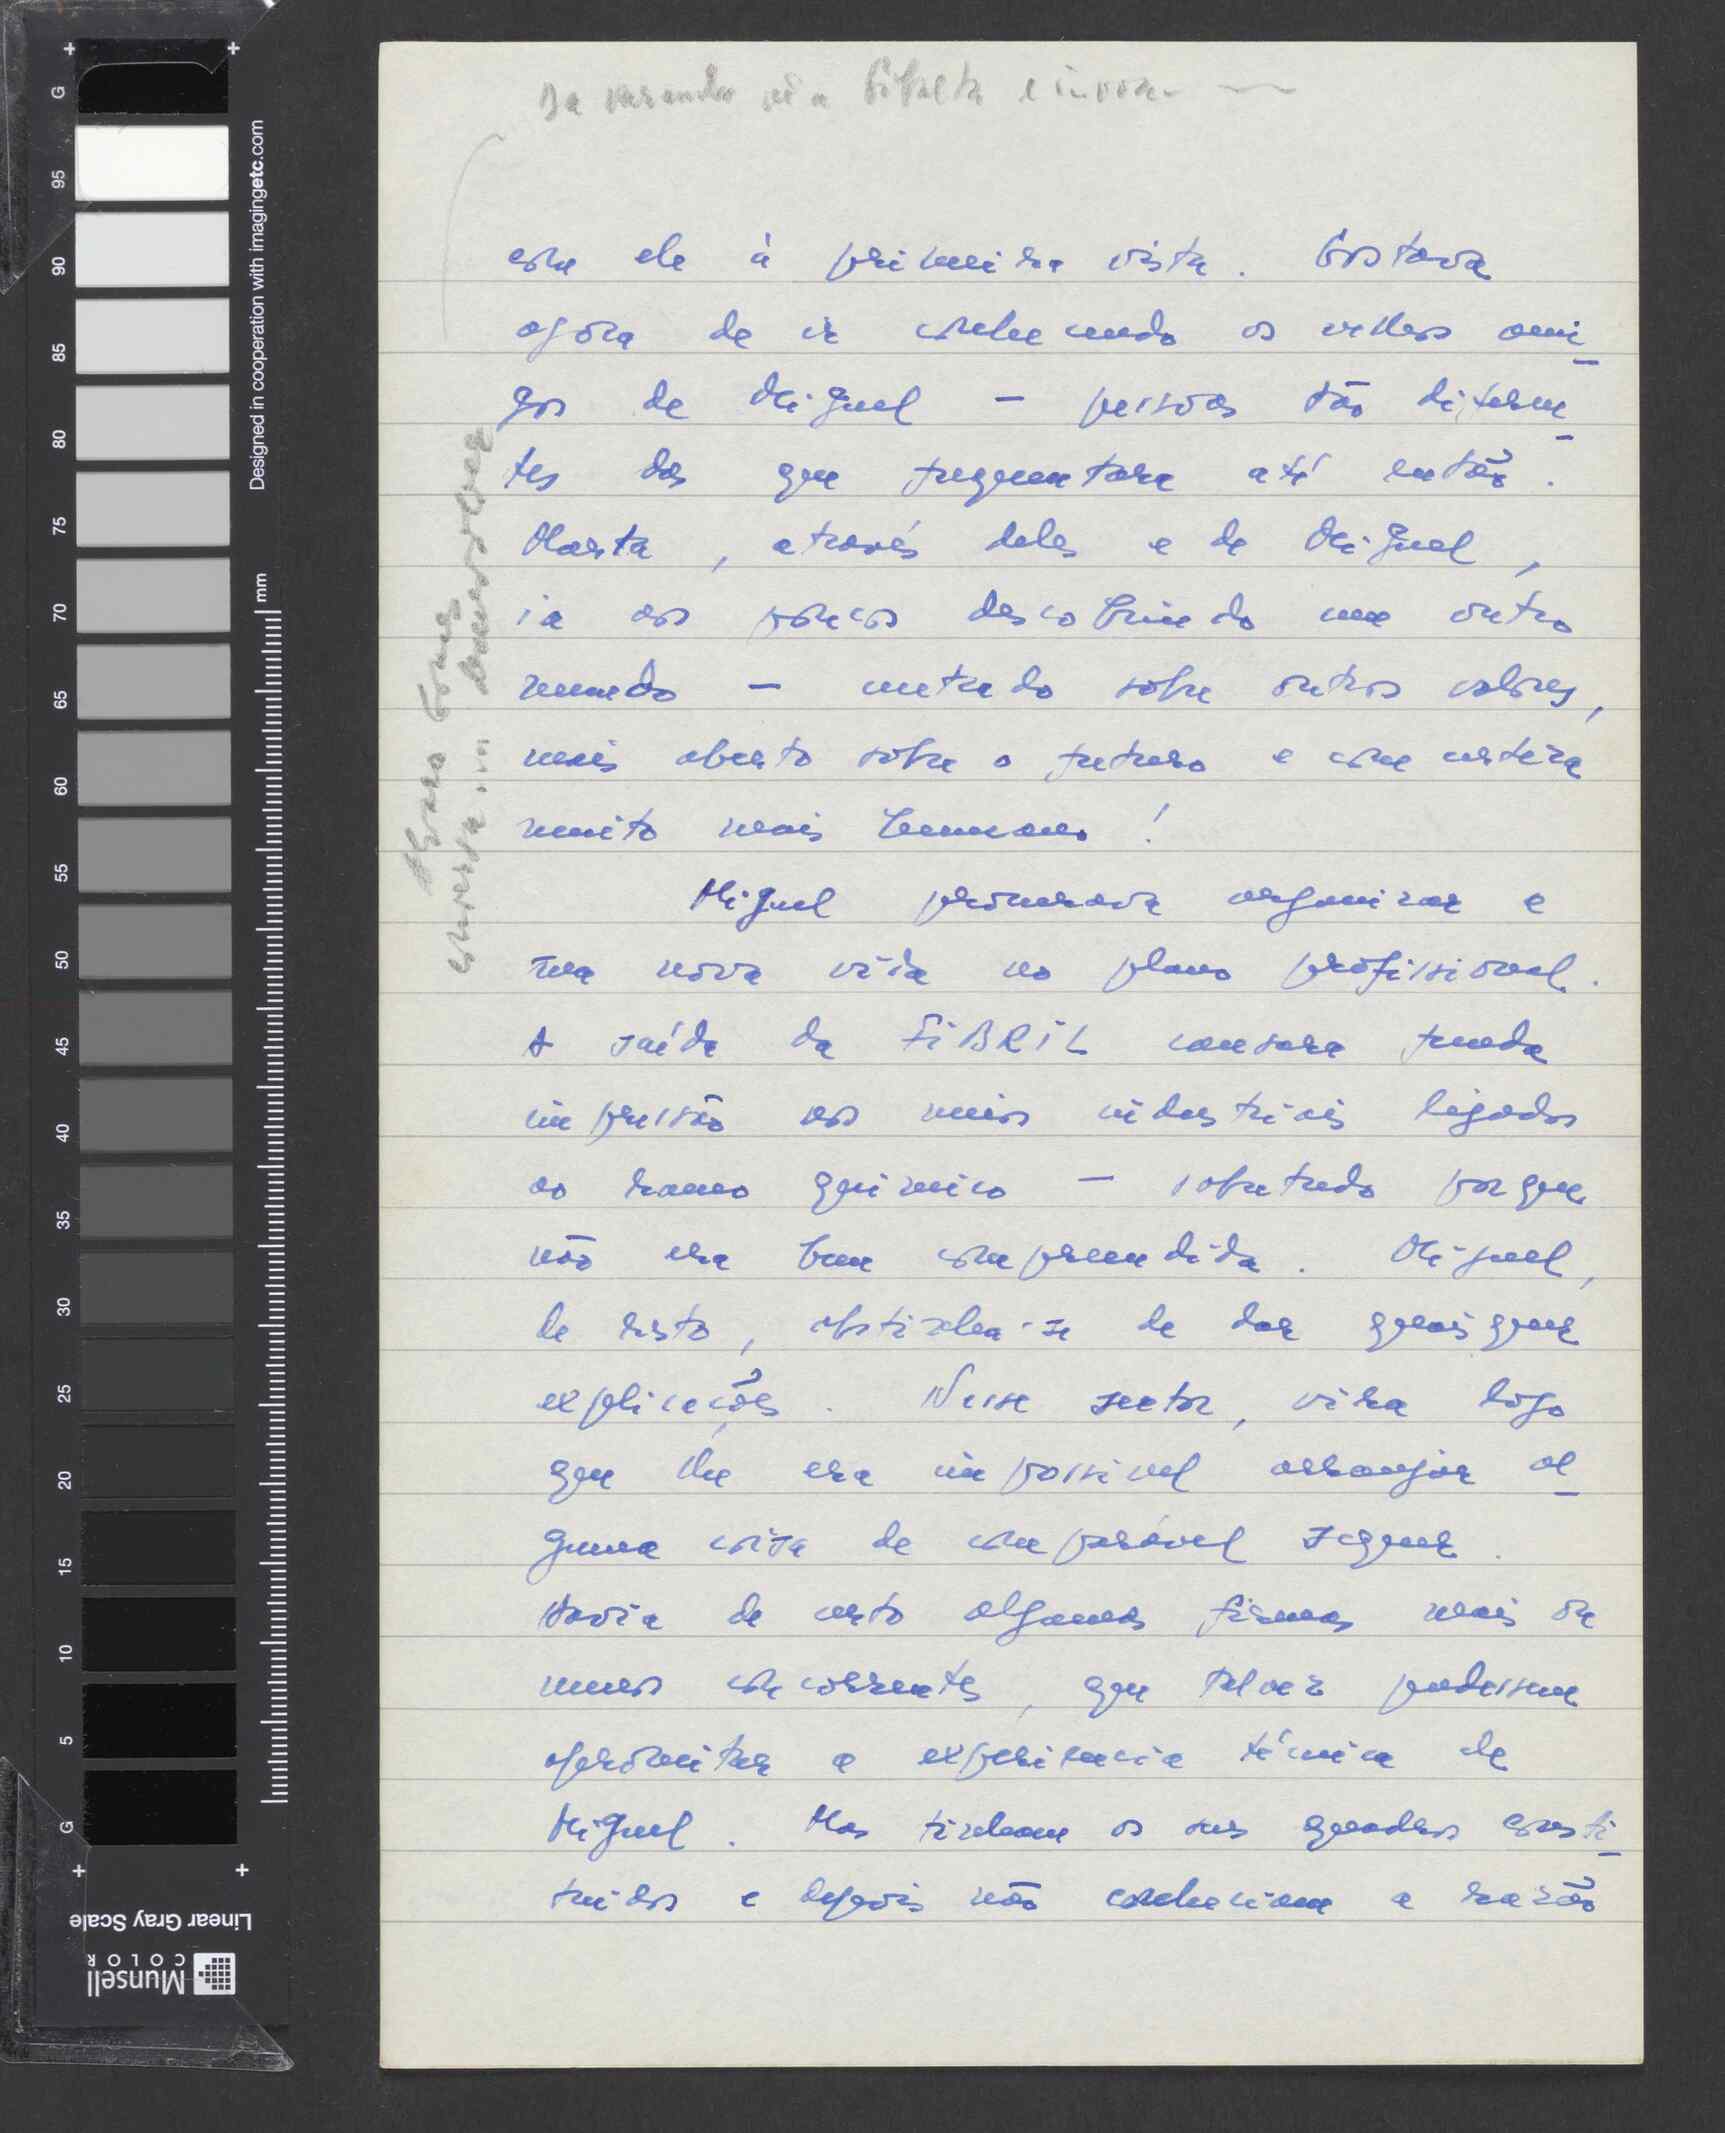 Da varanda vê a Ribalta e invoca
com ele à primeira vista. Gostava
agora de ir conhecendo os velhos ami-
gos de Miguel — pessoas tão diferen-
tes das que frequentara até então.
Marta, através deles e de Miguel,
ia aos poucos descobrindo um outro
mundo — centrado sobre outros valores,
mais aberto sobre o futuro e com certeza
muito mais humano!
Miguel procurava organizar a
sua nova vida no plano profissional.
A saída da FIBRIL causara funda
impressão nos meios industriais ligados
ao ramo químico — sobretudo porque
não era bem compreendida. Miguel,
de resto, abstinha-se de dar quaisquer
explicações. Nesse sector, vira logo
que lhe era impossível arranjar al-
guma coisa de comparável sequer.
Havia de certo algumas firmas mais ou
menos concorrentes, que talvez pudessem
aproveitar a experiência técnica de
Miguel. Mas tinham os seus quadros consti-
tuidos e depois não conheciam a razão
conversa... desenvolver
Designed in cooperation with imagingetc.com
mm
G 95 90 85 80 75 70 65 60 55 50 45 40 35 30 25 20 15 10 5 G
Linear Gray Scale
Munsell
COLOR